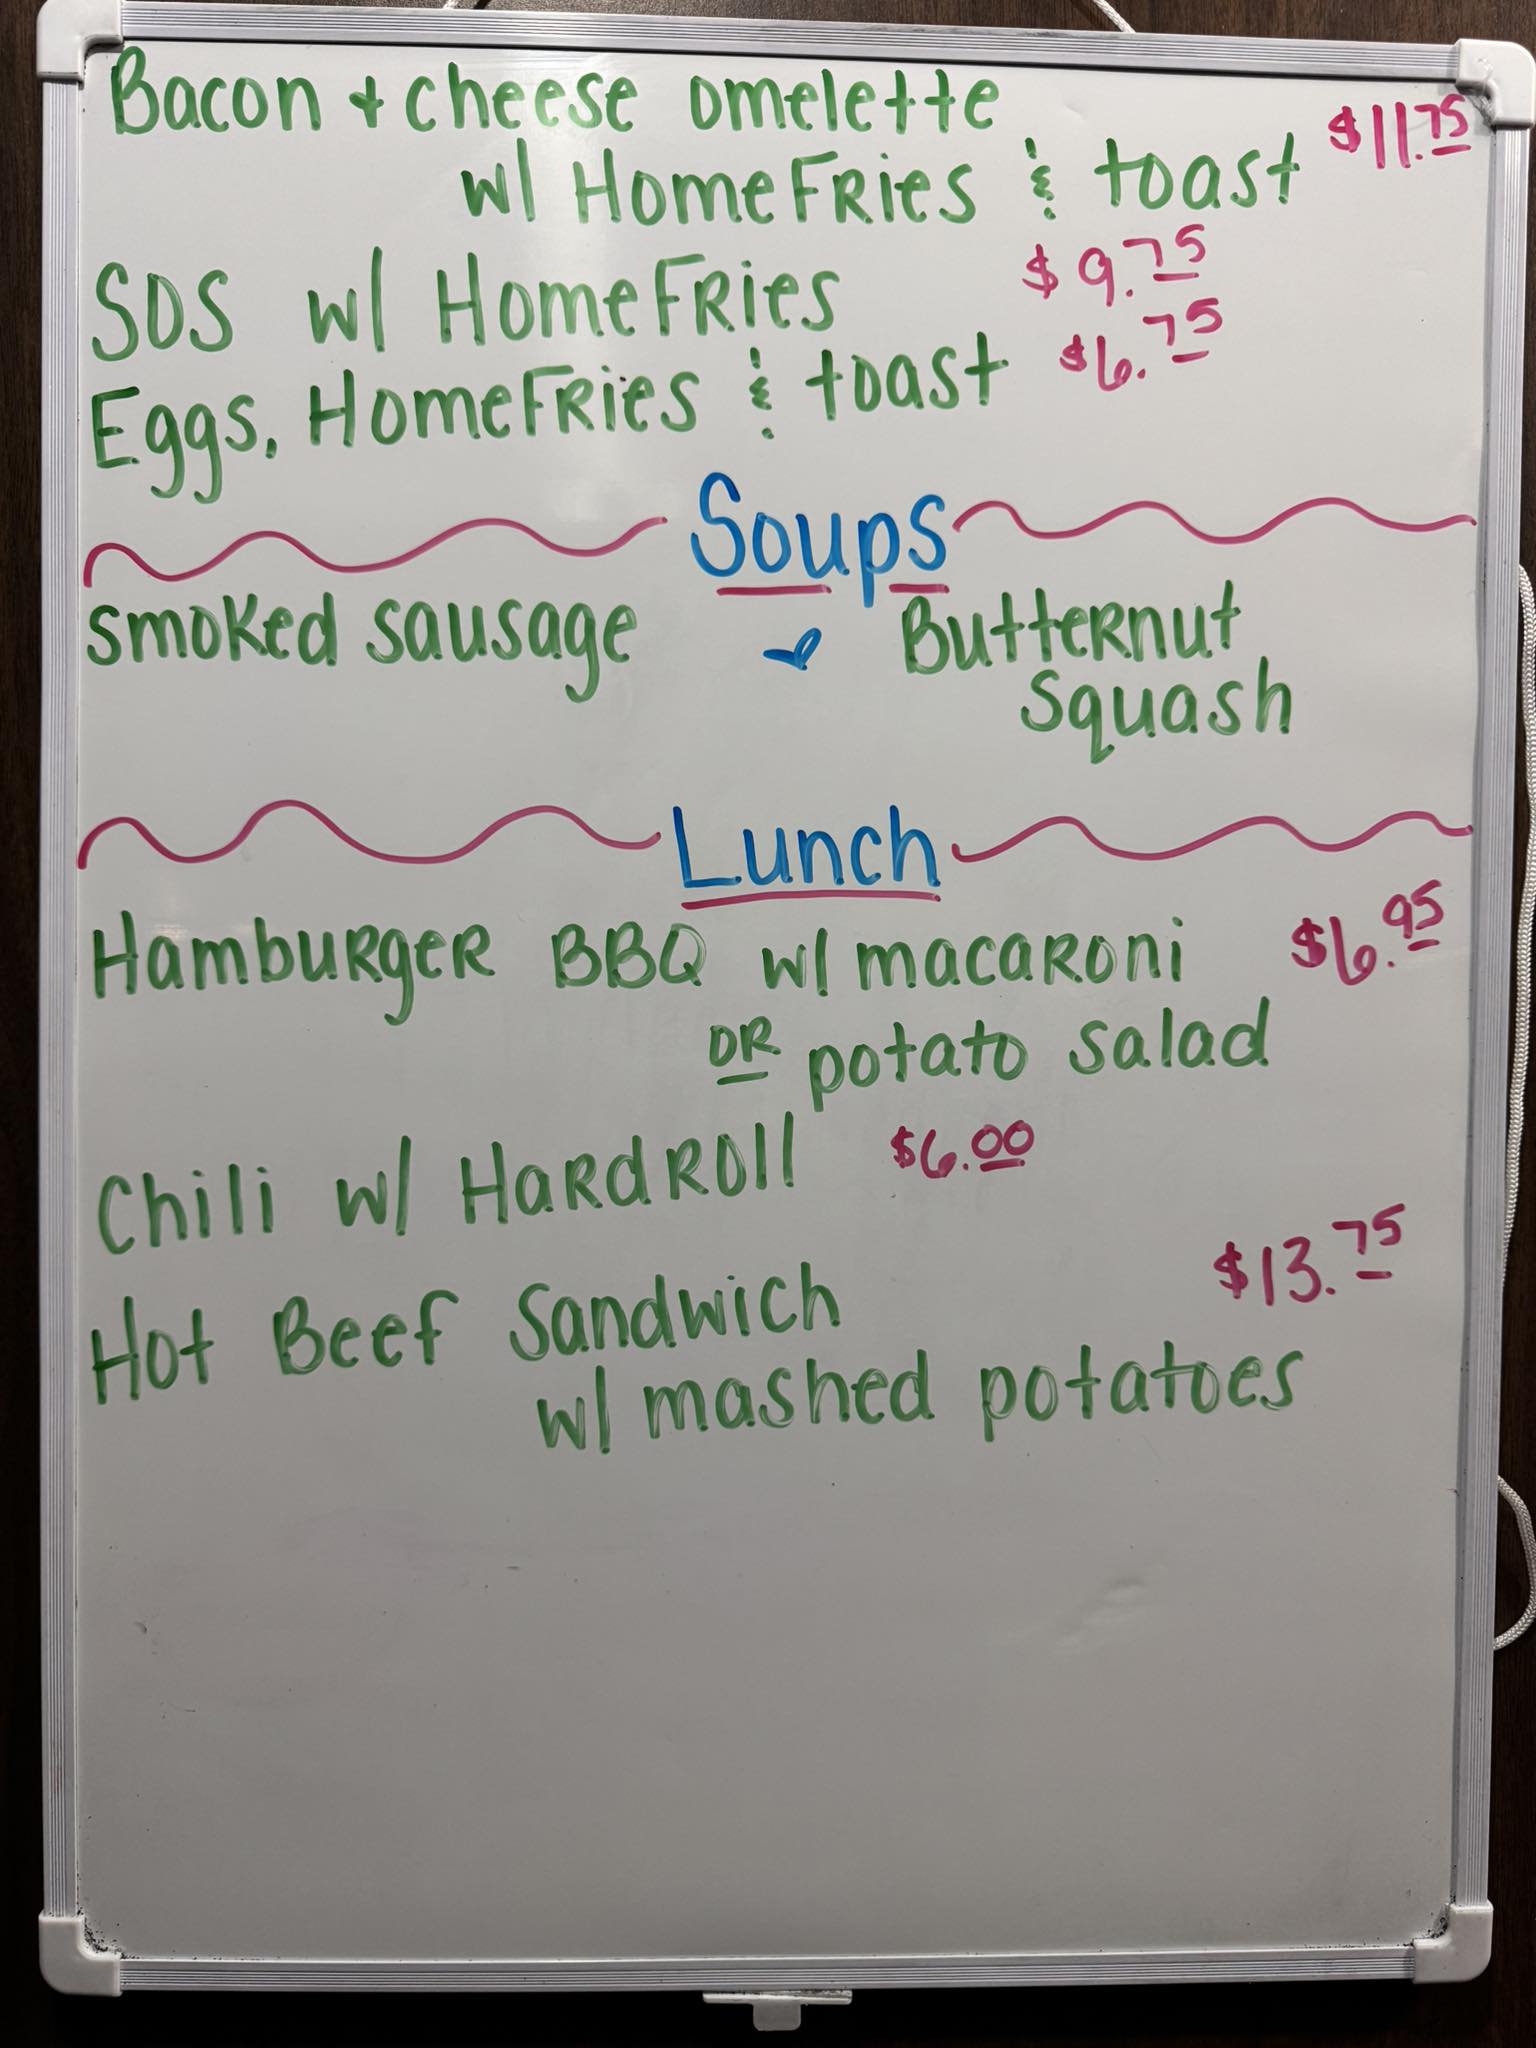 Bacon + cheese omelette $11.75
w/ HomeFRies & toast
SOS w/ HomeFRies $9.75
Eggs, HomeFRies & toast $6.75
Soups
smoked sausage Butternut
Squash
Lunch
HambuRgeR BBQ w/ macaRoni $6.95
OR potato salad
Chili w/ HaRd Roll $6.00
Hot Beef Sandwich $13.75
w/ mashed potatoes